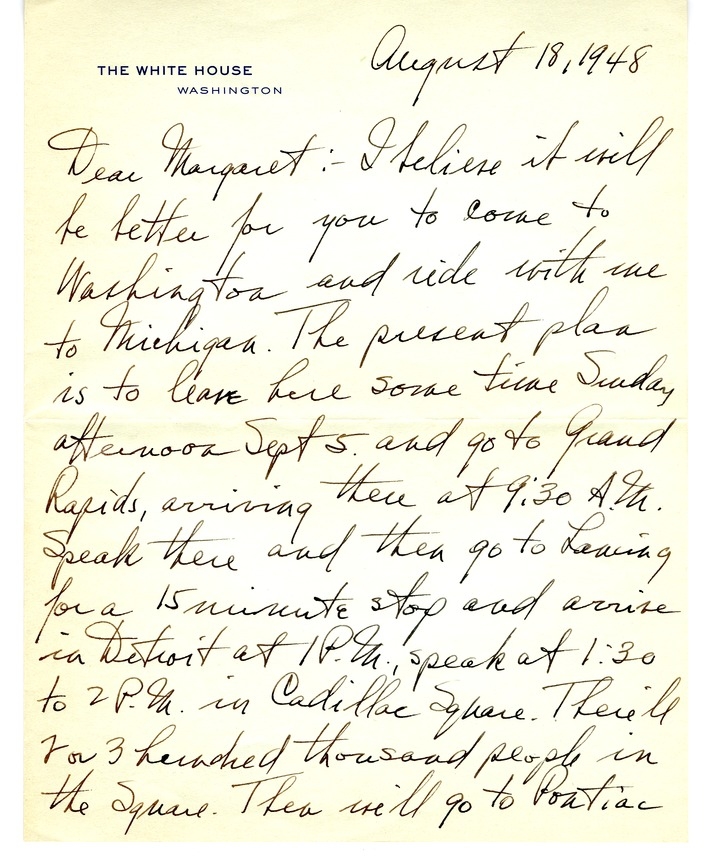 THE WHITE HOUSE
WASHINGTON
August 18, 1948
Dear Margaret:- I believe it will
be better for you to come to
Washington and ride with me
to Michigan. The present plan
is to leave here some time Sunday
afternoon Sept 5. and go to Grand
Rapids, arriving there at 9:30 A.M.
Speak there and then go to Lansing
for a 15 minute stop and arrive
in Detroit at 1 P.M., speak at 1:30
to 2 P.M. in Cadillac Square. There'll
2 or 3 hundred thousand people in
the Square. Then will go to Pontiac